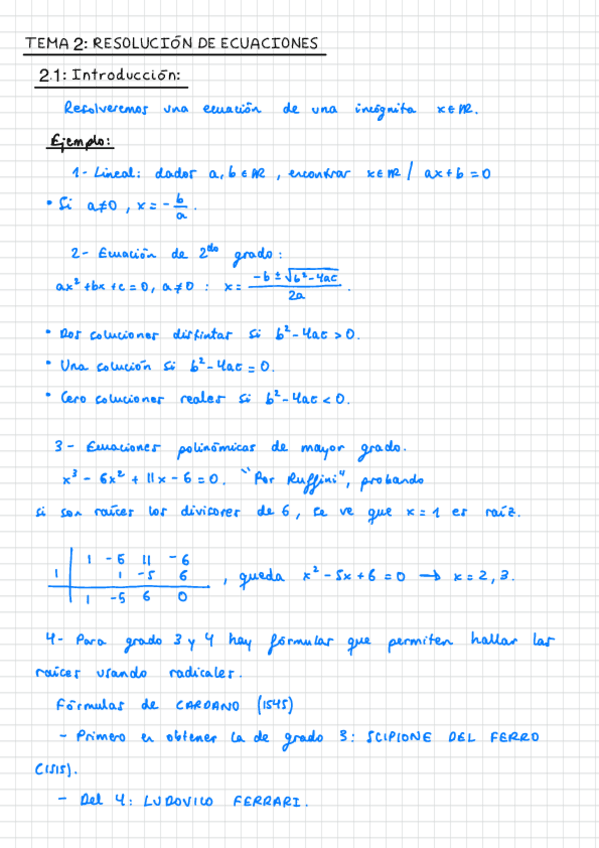 TEMA 2: RESOLUCIÓN DE ECUACIONES
2.1: Introducción:
Resolveremos una ecuación de una incógnita x∈ℝ.
Ejemplo:
1- Lineal: dados a, b ∈ ℝ, encontrar x∈ℝ / ax + b = 0
• Si a≠0, x = -b/a.
2- Ecuación de 2do grado:
ax² + bx + c = 0, a≠0 : x = (-b ± √(b²-4ac))/2a.
• Dos soluciones distintas si b²-4ac > 0.
• Una solución si b²-4ac = 0.
• Cero soluciones reales si b²-4ac < 0.
3- Ecuaciones polinómicas de mayor grado.
x³ - 6x² + 11x - 6 = 0. "Por Ruffini", probando
si son raíces los divisores de 6, se ve que x = 1 es raíz.
1 -6 11 -6
1 1 -5 6 , queda x² - 5x + 6 = 0 → x = 2, 3.
1 -5 6 0
4- Para grado 3 y 4 hay fórmulas que permiten hallar las
raíces usando radicales.
Fórmulas de CARDANO (1545)
- Primero en obtener la de grado 3: SCIPIONE DEL FERRO
(1515).
- Del 4: LUDOVICO FERRARI.